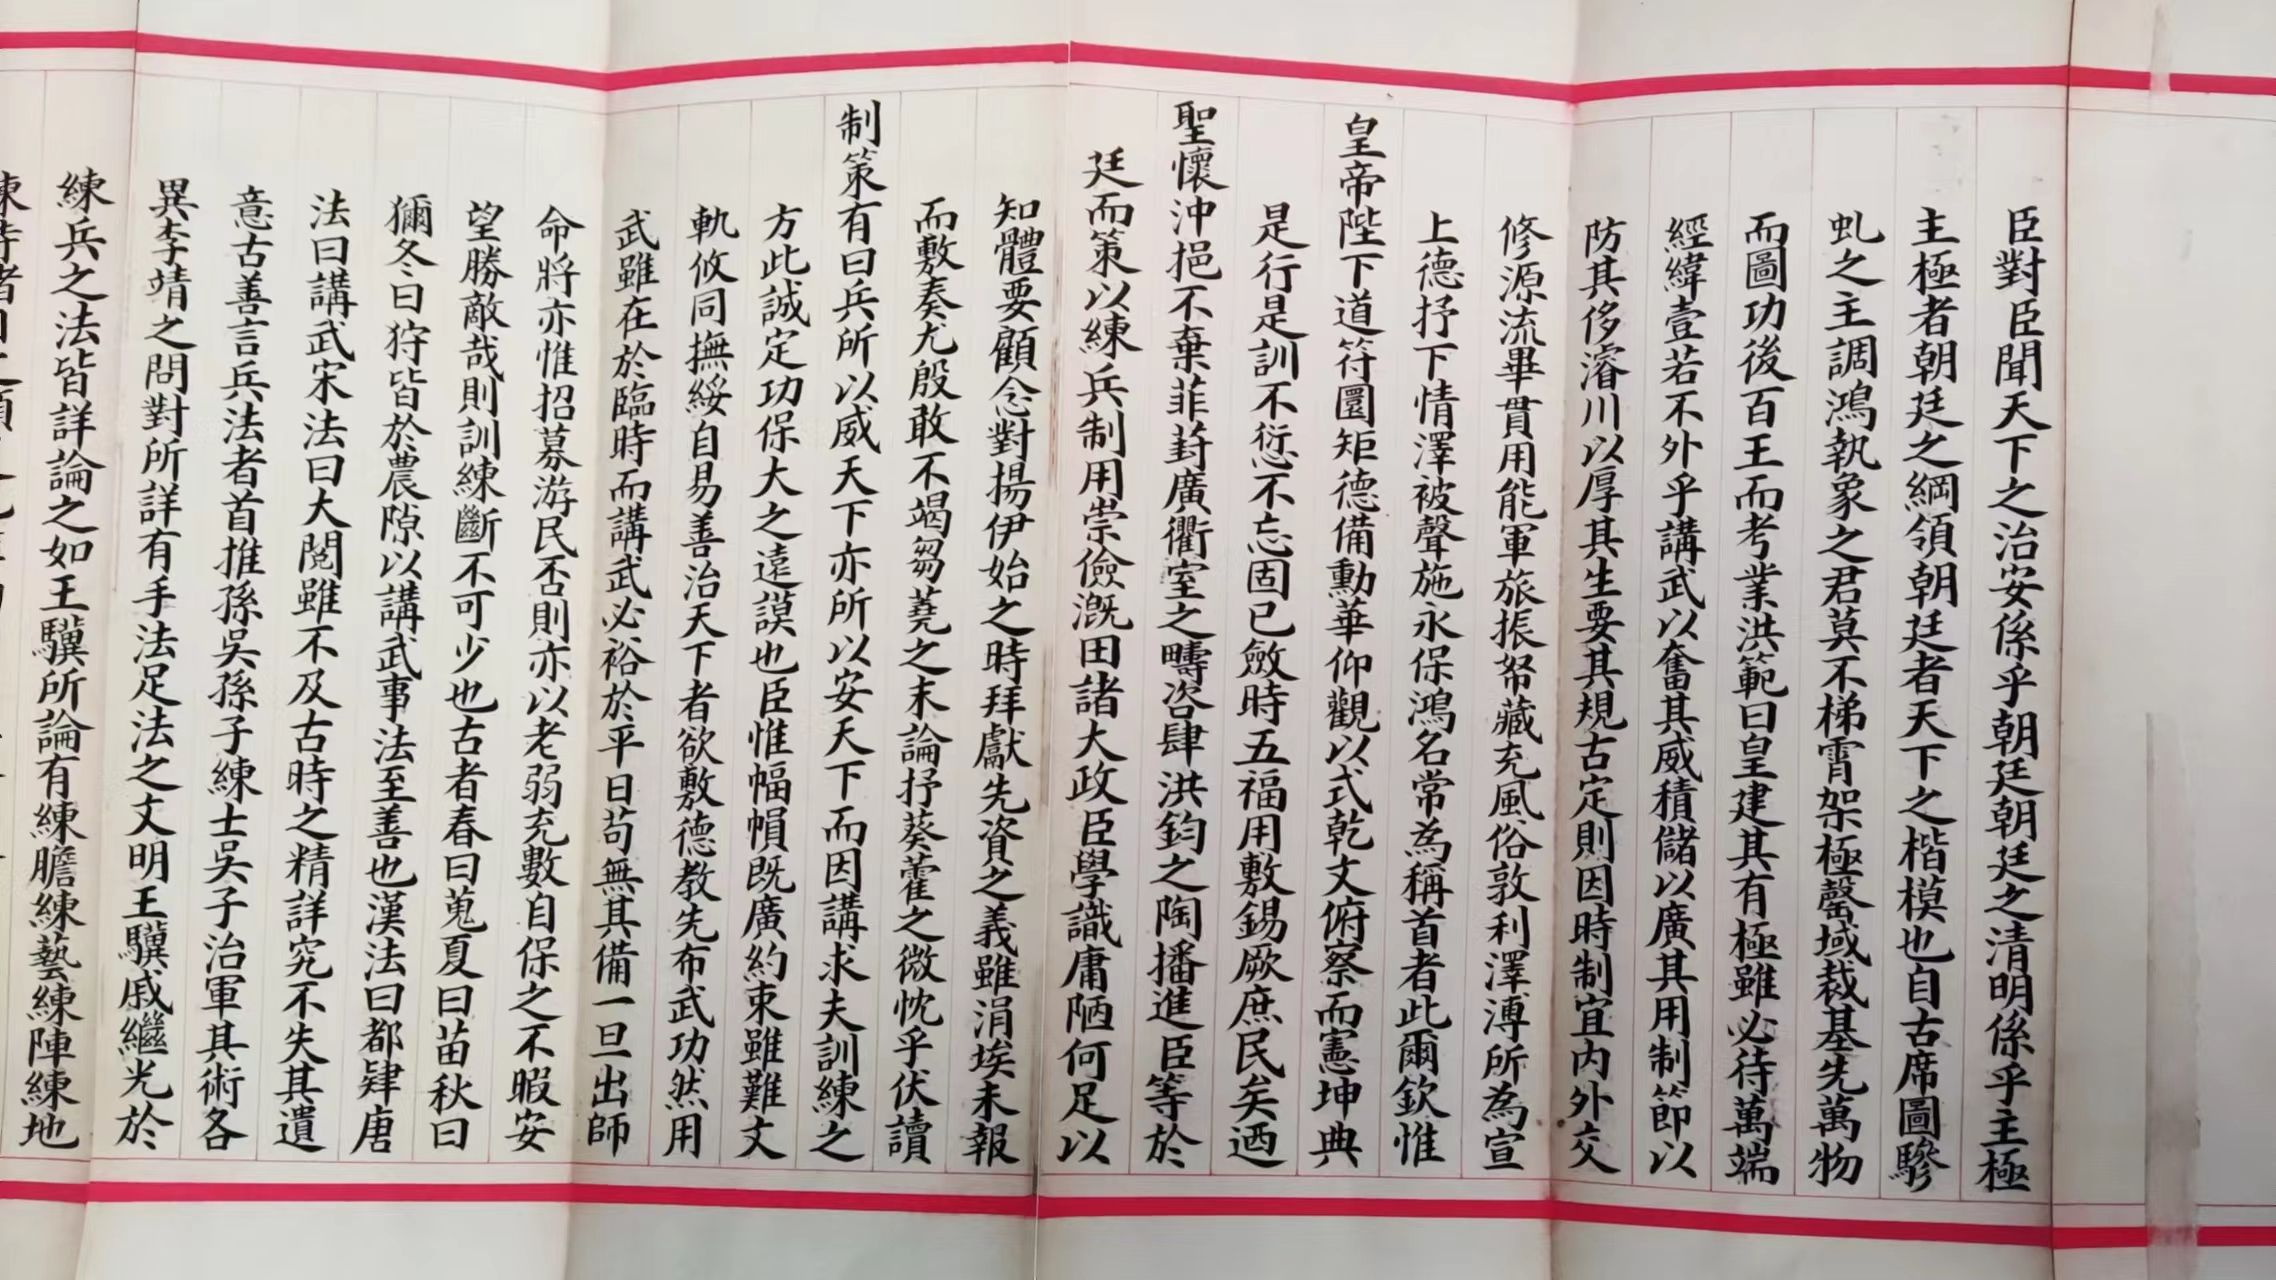 臣對臣聞天下之治安係乎朝廷朝廷之清明係乎主極
主極者朝廷之綱領朝廷者天下之楷模也自古席圖驂
虬之主調鴻執象之君莫不梯霄架極罄域裁基先萬物
而圖功後百王而考業洪範曰皇建其有極雖必待萬端
經緯壹若不外乎講武以奮其威積儲以廣其用制節以
防其侈濬川以厚其生要其規古定則因時制宜內外交
修源流畢貫用能軍旅振帑藏充風俗敦利澤溥所為宣
上德抒下情澤被聲施永保鴻名常為稱首者此爾欽惟
皇帝陛下道符圜矩德備勳華仰觀以式乾文俯察而憲坤典
是行是訓不愆不忘固已斂時五福用敷錫厥庶民矣迺
聖懷沖挹不棄菲葑廣衢室之疇咨肆洪鈞之陶播進臣等於
廷而策以練兵制用崇儉溉田諸大政臣學識庸陋何足以
知體要顧念對揚伊始之時拜獻先資之義雖涓埃未報
而敷奏尤殷敢不竭芻蕘之末論抒葵藿之微忱乎伏讀
制策有曰兵所以威天下亦所以安天下而因講求夫訓練之
方此誠定功保大之遠謨也臣惟幅幀既廣約束雖難文
軌攸同撫綏自易善治天下者欲敷德教先布武功然用
武雖在於臨時而講武必裕於平日苟無其備一旦出師
命將亦惟招募游民否則亦以老弱充數自保之不暇安
望勝敵哉則訓練斷不可少也古者春曰蒐夏曰苗秋曰
獮冬曰狩皆於農隙以講武事法至善也漢法曰都肄唐
法曰講武宋法曰大閱雖不及古時之精詳究不失其遺
意古善言兵法者首推孫吳孫子練士吳子治軍其術各
異李靖之問對所詳有手法足法之文明王驥戚繼光於
練兵之法皆詳論之如王驥所論有練膽練藝練陣練地